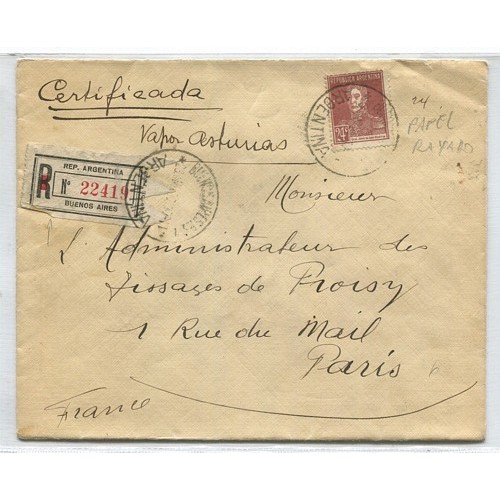 Certificada
Vapor Asturias
REPUBLICA ARGENTINA
24
ARGENTINA
24
PAPEL
RAYADO
REP. ARGENTINA
R Nº 22419
BUENOS AIRES
ARGENTINA
Monsieur
L'Administrateur des
Tissages de Proisy
1 Rue du Mail
Paris
France